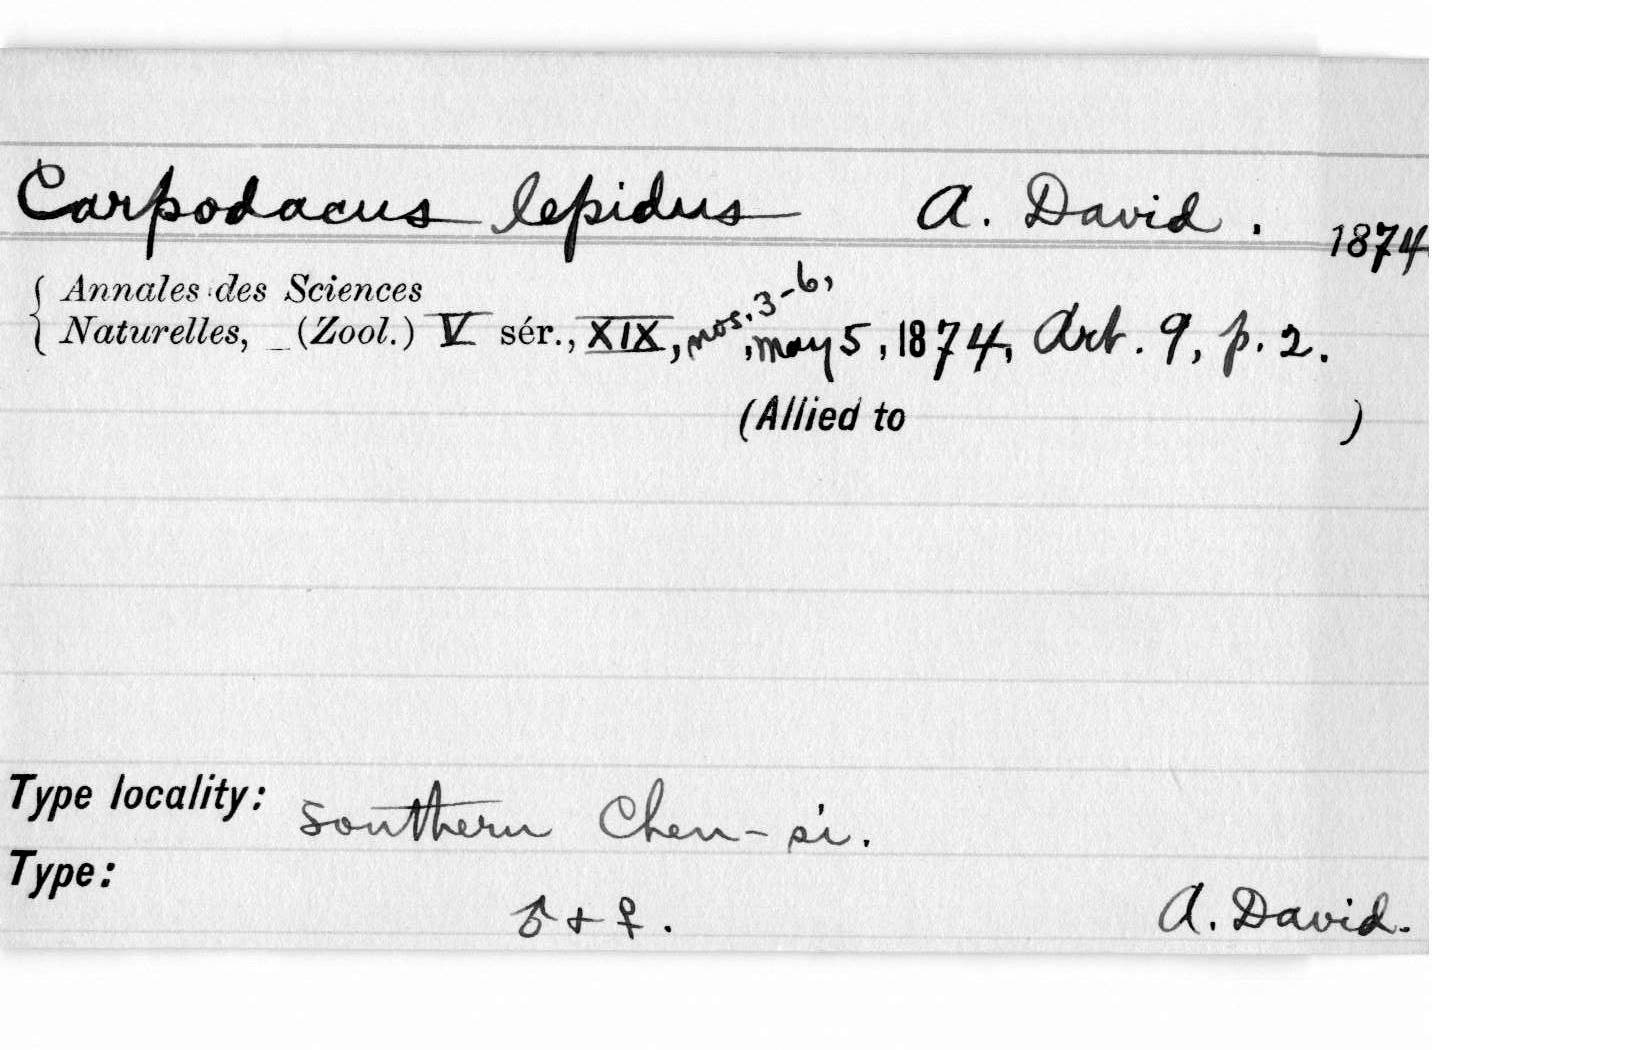 Carpodacus lepidus A. David. 1874
{ Annales des Sciences
Naturelles, _ (Zool.) V sér., XIX, nos. 3-6, May 5, 1874, Art. 9, p. 2.
(Allied to )
Type locality: Southern Chen-si.
Type:
♂ + ♀. A. David.